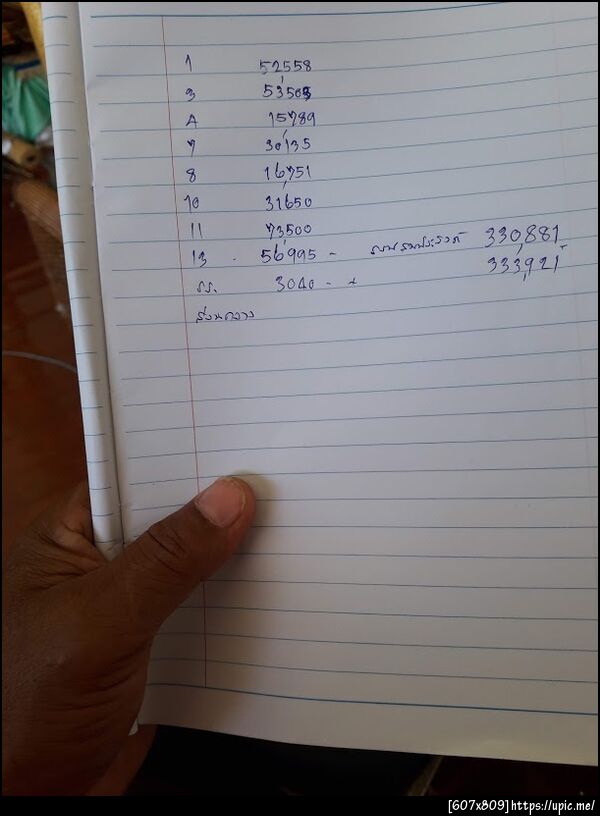 1 52558
3 53,503
4 15789
7 30,135
8 16751
10 31,650
11 73500
13 - 56,995 - 330,881
รร. 3040 - 333,921
ส่วนกลาง
[607x809]https://upic.me/